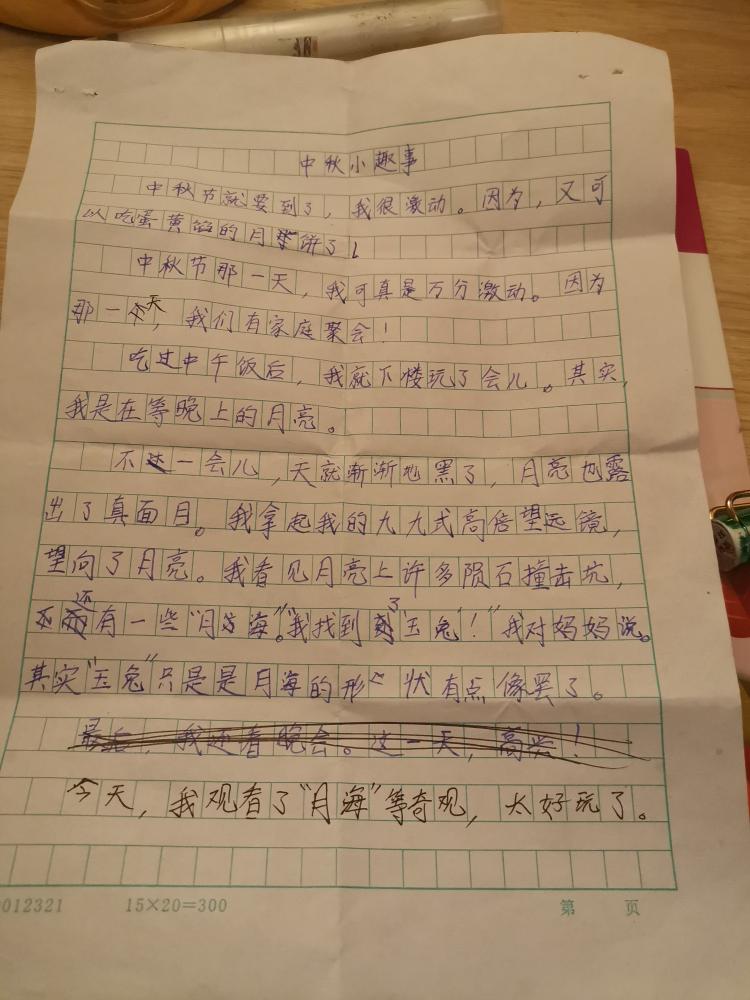 中秋小趣事
中秋节就要到了，我很激动。因为，又可
以吃蛋黄馅的月饼了！
中秋节那一天，我可真是万分激动。因为
那一天，我们有家庭聚会！
吃过中午饭后，我就下楼玩了会儿。其实，
我是在等晚上的月亮。
不一会儿，天就渐渐地黑了，月亮也露
出了真面目。我拿起我的九九式高倍望远镜，
望向了月亮。我看见月亮上许多陨石撞击坑，
还有一些“月海”。“我找到了‘玉兔’！”我对妈妈说。
其实“玉兔”只是是月海的形状有点像罢了。
最后，我还看晚会。这一天，高兴！
今天，我观看了“月海”等奇观，太好玩了。
0012321 15×20=300 第 页